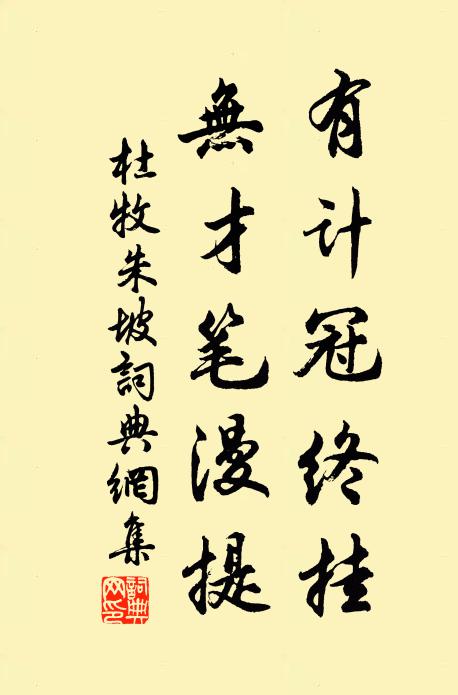 有计冠终挂
無才笔漫提
杜牧朱坡詞典網集
詞典网印